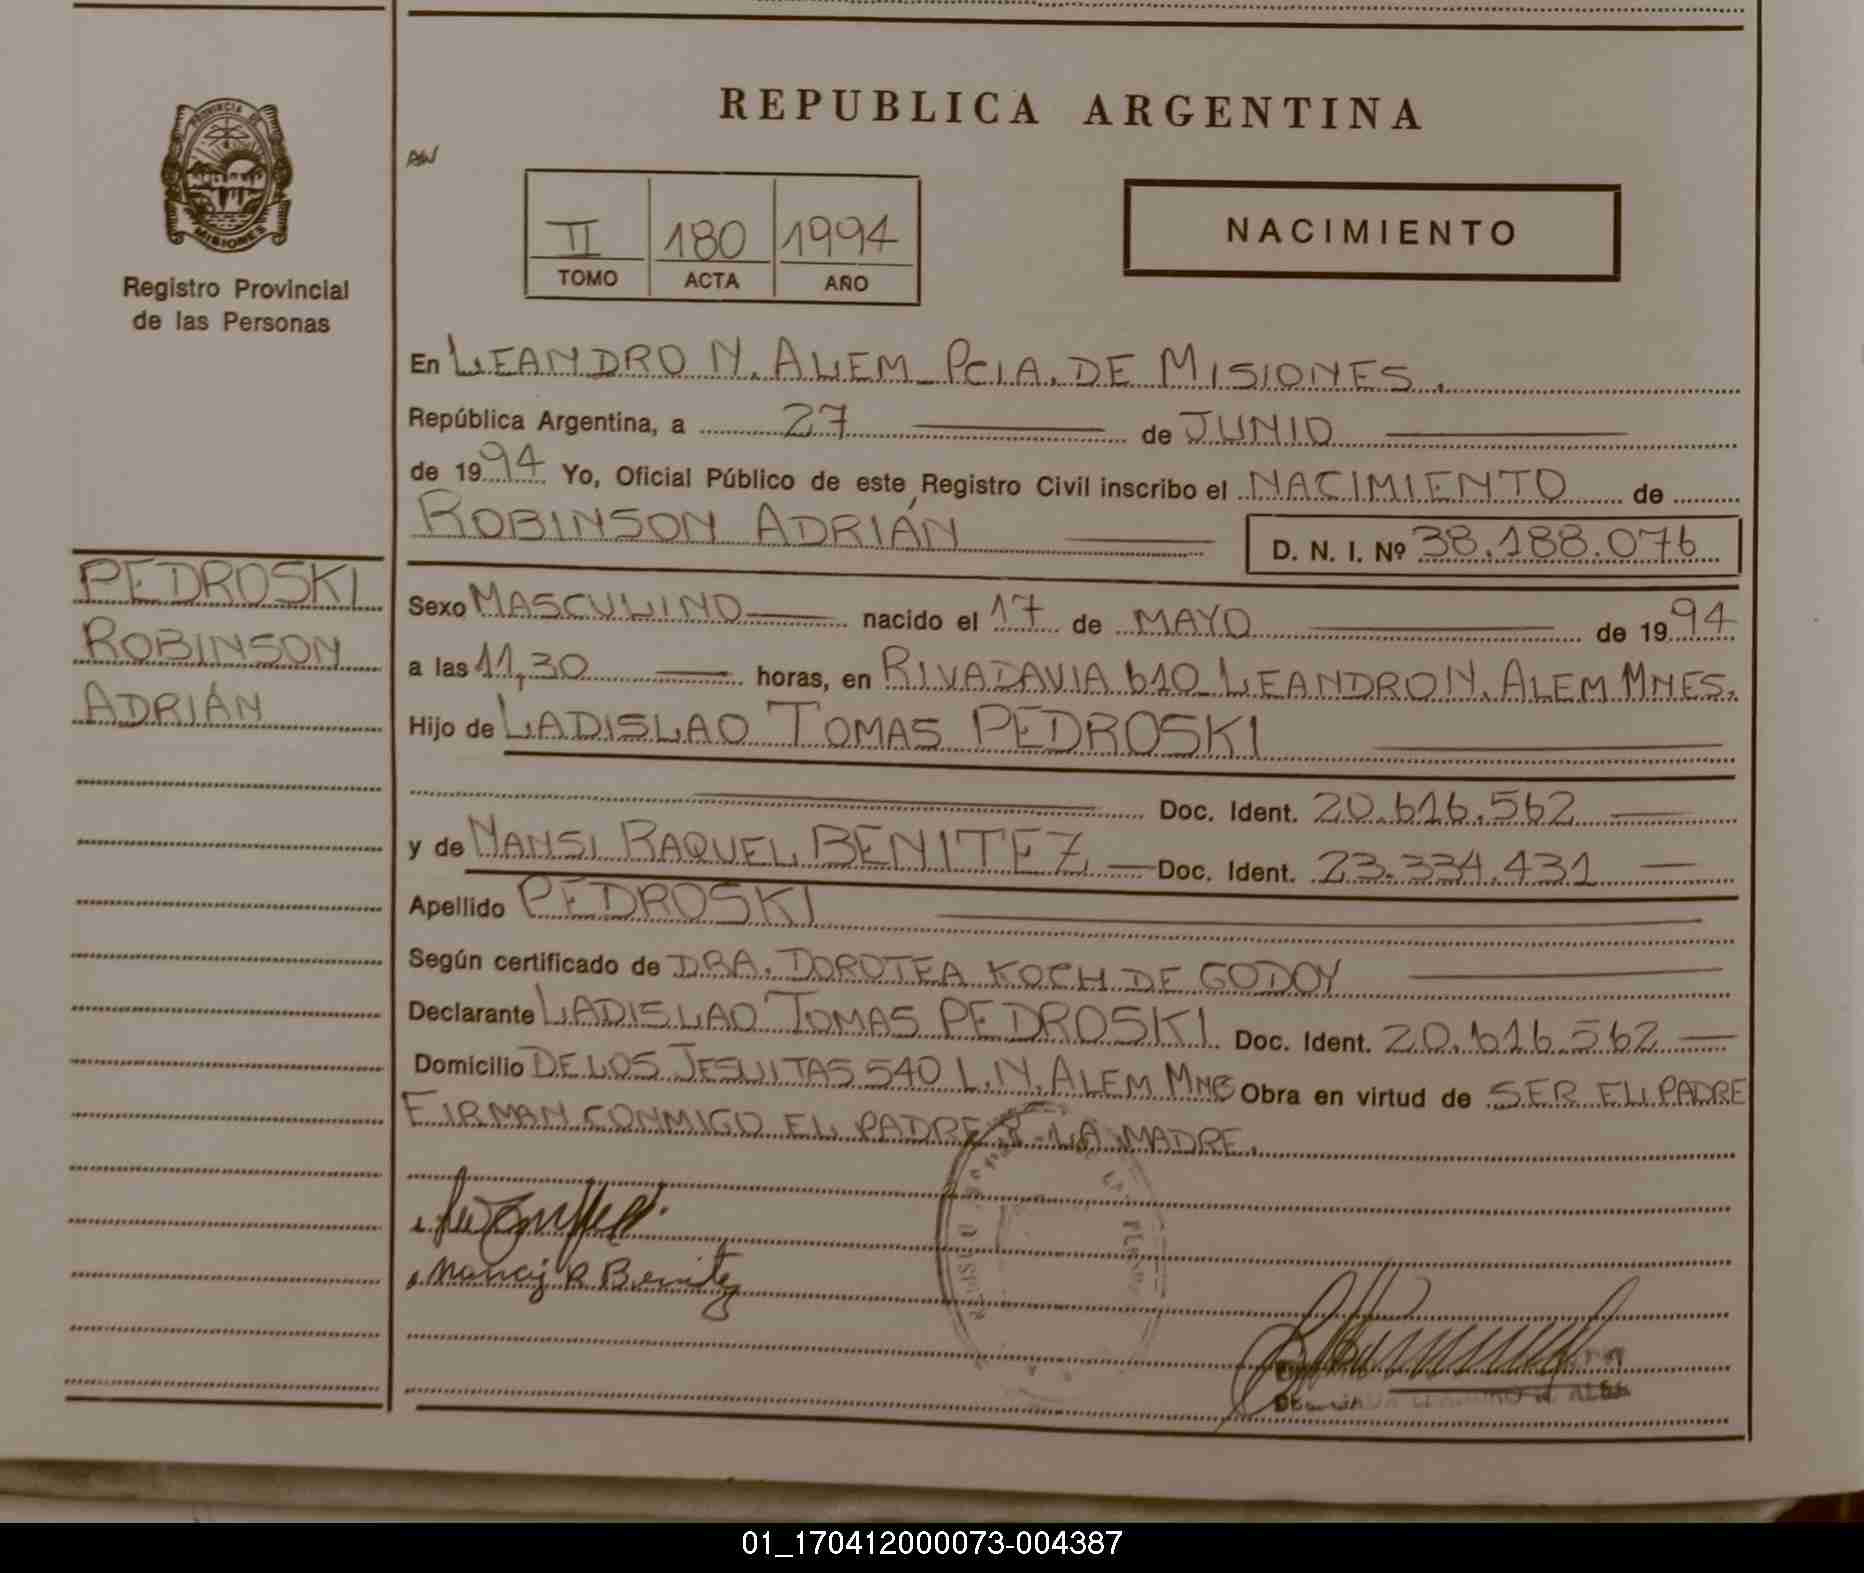 REPUBLICA ARGENTINA
PROVINCIA DE
MISIONES
Registro Provincial
de las Personas
II 180 1994
TOMO ACTA AÑO
NACIMIENTO
En LEANDRO N. ALEM PCIA. DE MISIONES.
República Argentina, a 27 de JUNIO
de 1994 Yo, Oficial Público de este Registro Civil inscribo el NACIMIENTO de
ROBINSON ADRIÁN D. N. I. Nº 38.188.076
PEDROSKI
ROBINSON
ADRIÁN
Sexo MASCULINO nacido el 17 de MAYO de 1994
a las 11,30 horas, en RIVADAVIA 610 LEANDRO N. ALEM MNES.
Hijo de LADISLAO TOMAS PEDROSKI
Doc. Ident. 20.616.562
y de NANSI RAQUEL BENITEZ Doc. Ident. 23.334.431
Apellido PEDROSKI
Según certificado de DRA. DOROTEA KOCH DE GODOY
Declarante LADISLAO TOMAS PEDROSKI Doc. Ident. 20.616.562
Domicilio DE LOS JESUITAS 540 L.N. ALEM MNES Obra en virtud de SER EL PADRE
FIRMAN CONMIGO EL PADRE Y LA MADRE.
Nancy R Benitez
01_170412000073-004387